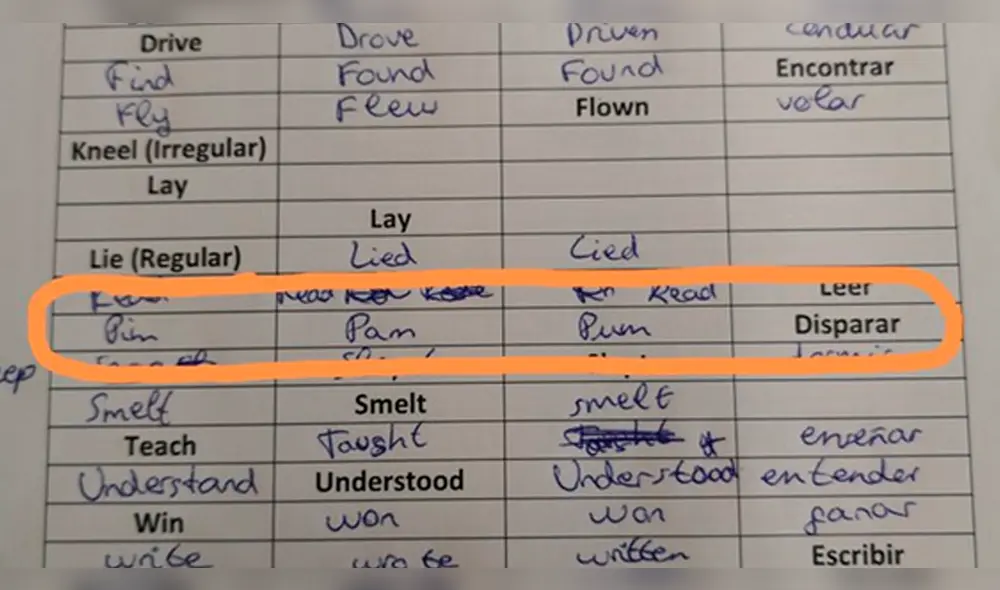 Drive Drove Driven conducir
Find Found Found Encontrar
Fly Flew Flown volar
Kneel (Irregular)
Lay
Lay
Lie (Regular) Lied Lied
Read Read Leer
Pim Pam Pum Disparar
ep
Smelt Smelt smelt
Teach Taught enseñar
Understand Understood Understood entender
Win won won ganar
write wrote written Escribir